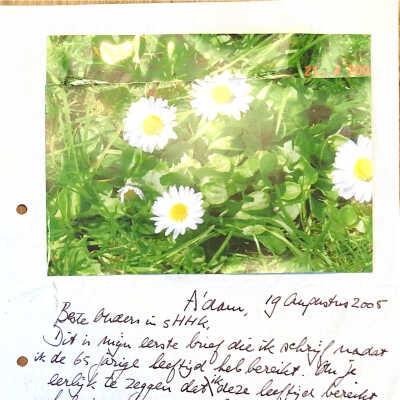 A'dam, 19 Augustus 2005
Beste ouders in sHHK,
Dit is mijn eerste brief die ik schrijf nadat
ik de 65 jarige leeftijd heb bereikt. Om je
eerlijk te zeggen dat ik deze leeftijd bereikt